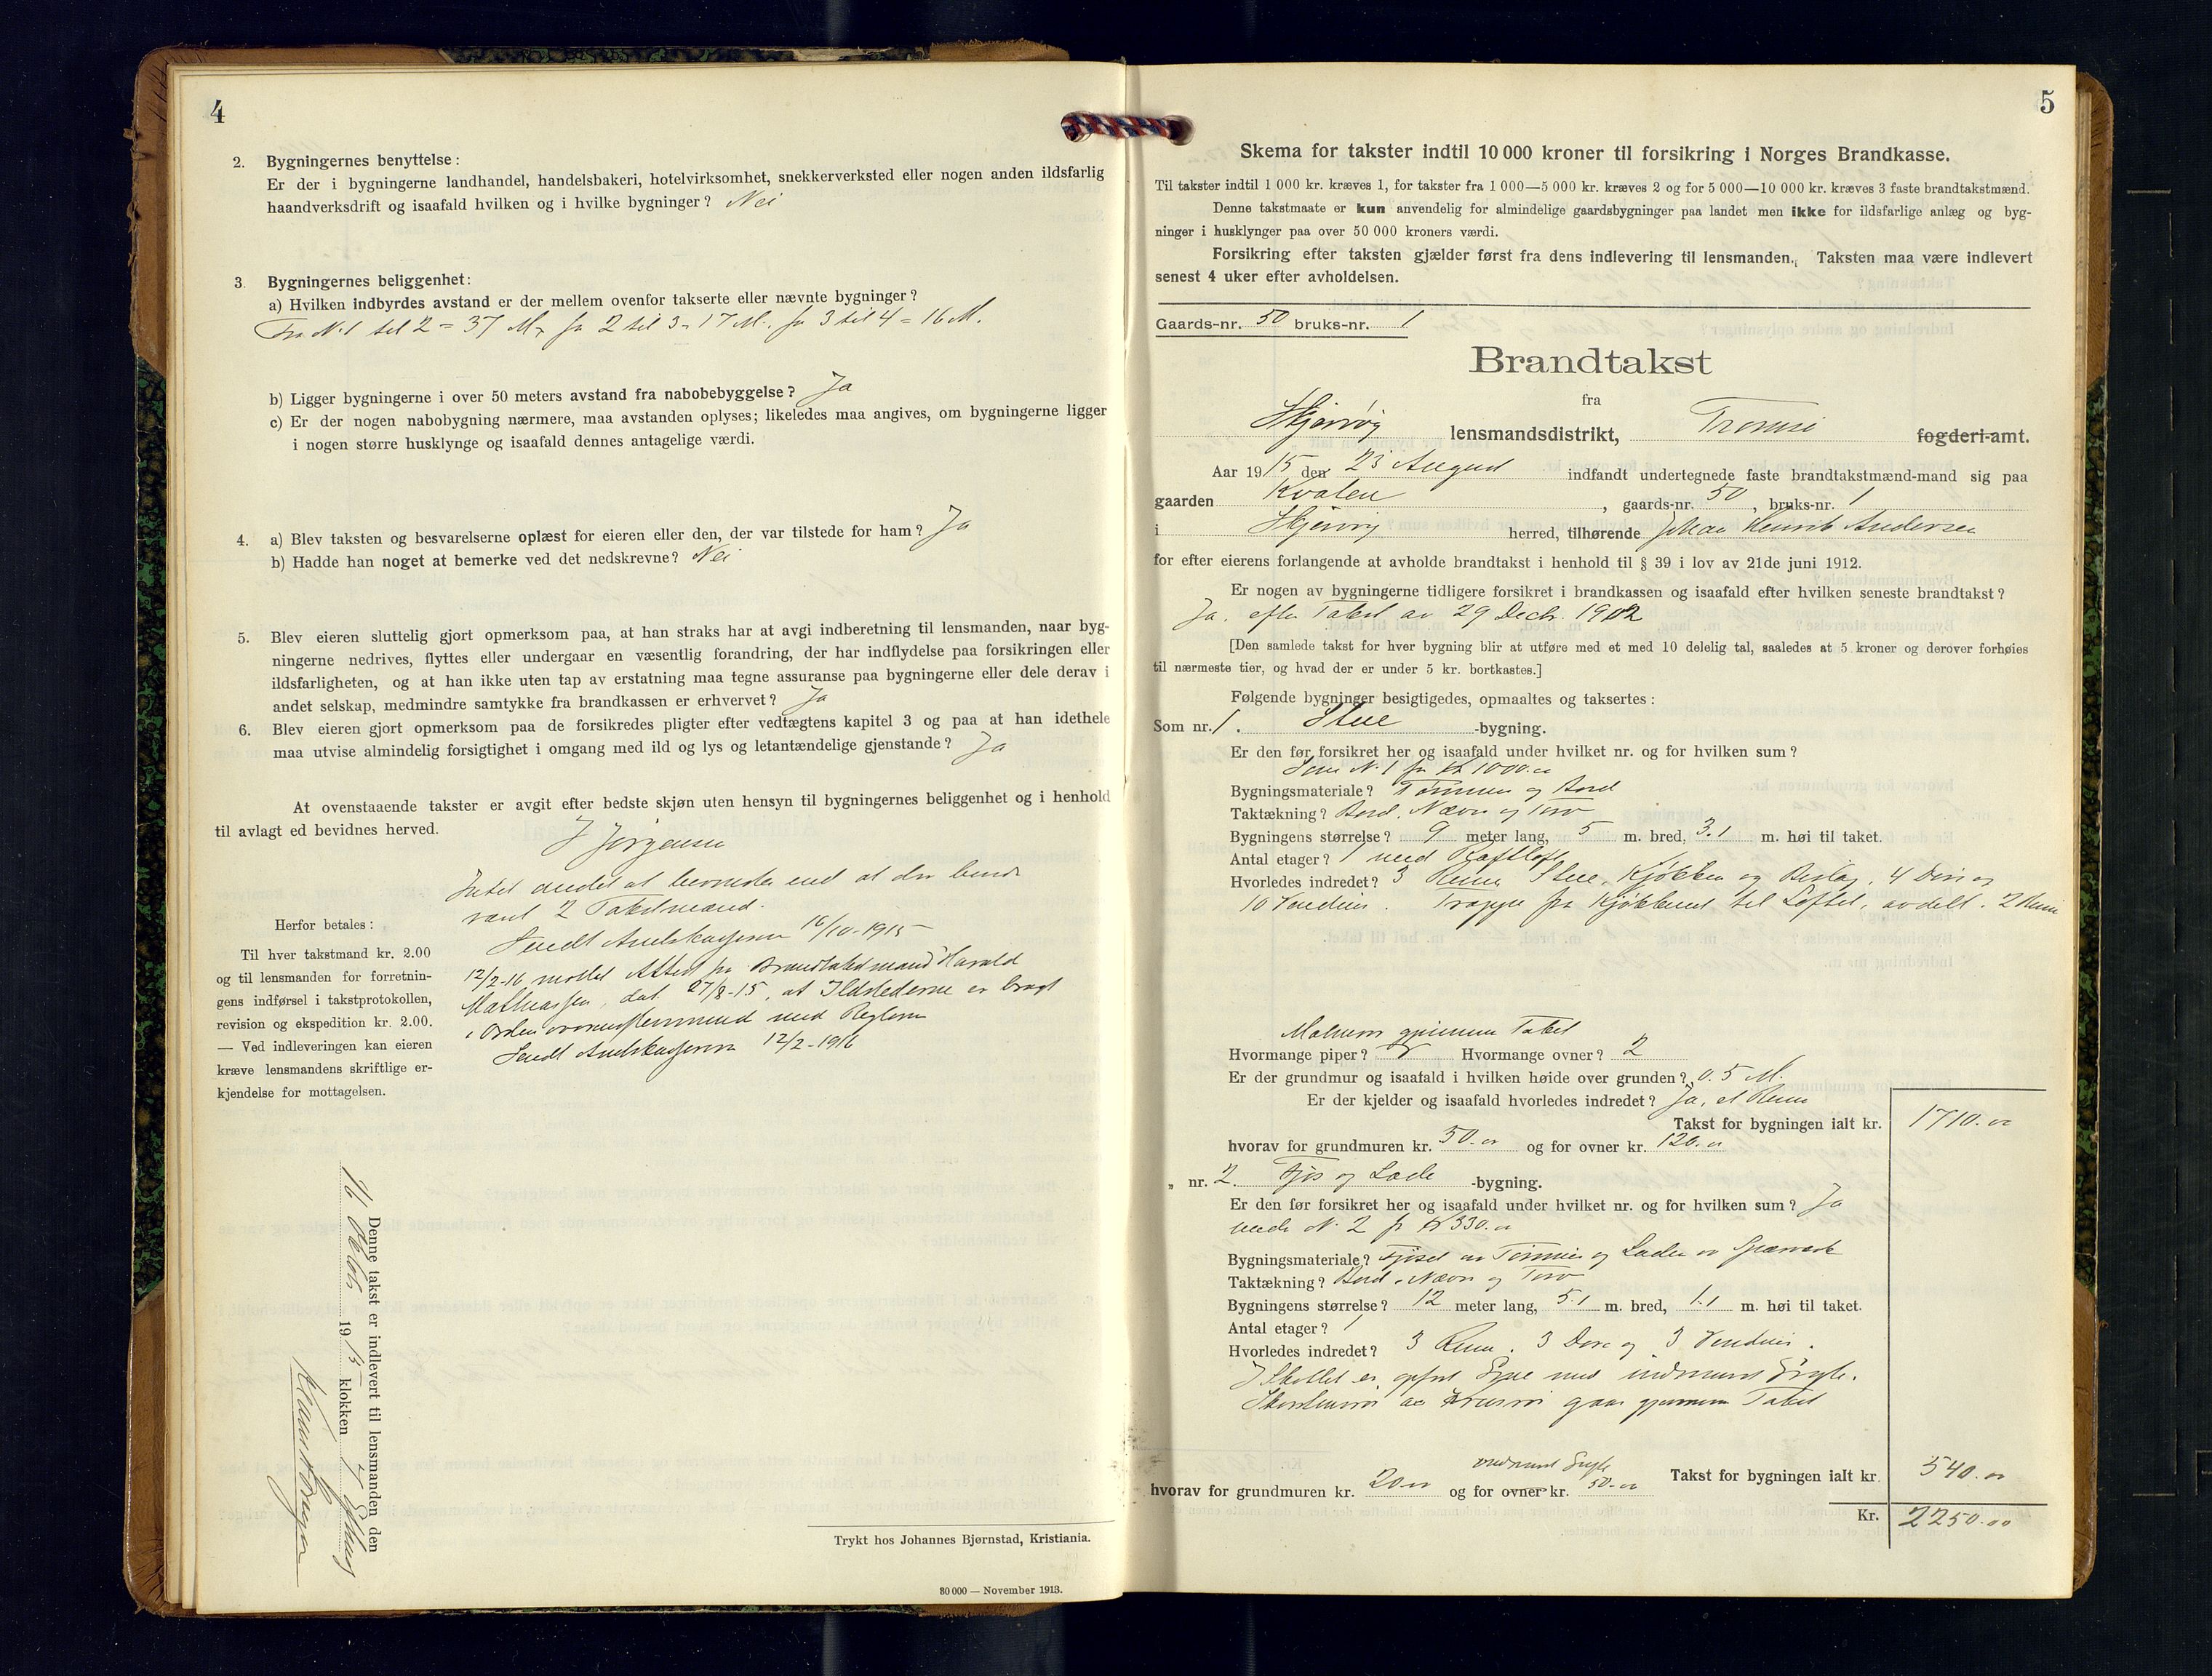 4
2. Bygningernes benyttelse:
Er der i bygningerne landhandel, handelsbakeri, hotelvirksomhet, snekkerverksted eller nogen anden ildsfarlig
haandverksdrift og isaafald hvilken og i hvilke bygninger? Nei
3 Bygningernes beliggenhet:
a) Hvilken indbyrdes avstand er der mellem ovenfor takserte eller nævnte bygninger?
Fra N. 1 til 2 = 37 M, fr 2 til 3 = 17 M. fr 3 til 4 = 16 M.
b) Ligger bygningerne i over 50 meters avstand fra nabobebyggelse? Ja
c) Er der nogen nabobygning nærmere, maa avstanden oplyses; likeledes maa angives, om bygningerne ligger
i nogen større husklynge og isaafald dennes antagelige værdi.
4. a) Blev taksten og besvarelserne oplæst for eieren eller den, der var tilstede for ham? Ja
b) Hadde han noget at bemerke ved det nedskrevne? Nei
5. Blev eieren sluttelig gjort opmerksom paa, at han straks har at avgi indberetning til lensmanden, naar byg-
ningerne nedrives, flyttes eller undergaar en væsentlig forandring, der har indflydelse paa forsikringen eller
ildsfarligheten, og at han ikke uten tap av erstatning maa tegne assuranse paa bygningerne eller dele derav i
andet selskap, medmindre samtykke fra brandkassen er erhvervet? Ja
6. Blev eieren gjort opmerksom paa de forsikredes pligter efter vedtægtens kapitel 3 og paa at han idethele
maa utvise almindelig forsigtighet i omgang med ild og lys og letantændelige gjenstande? Ja
At ovenstaaende takster er avgit efter bedste skjøn uten hensyn til bygningernes beliggenhet og i henhold
til avlagt ed bevidnes herved.
J Jørgensen
Intet andet at bemerke end at der burde
vært 2 Takstmænd.
Sendt 16/10-1915
12/2-16 mottat Attest fra Brandtakstmand Harald
Mathiassen, dat. 27/8-15, at Ildstederne er bragt
i Orden overensstemmend med Reglerne
Sendt 12/2-1916
Herfor betales:
Til hver takstmand kr. 2.00
og til lensmanden for forretnin-
gens indførsel i takstprotokollen,
revision og ekspedition kr. 2.00.
— Ved indleveringen kan eieren
kræve lensmandens skriftlige er-
kjendelse for mottagelsen.
Denne takst er indlevert til lensmanden den
16 Oktob. 1915 klokken
Trykt hos Johannes Bjørnstad, Kristiania.
30 000 — November 1913.
5
Skema for takster indtil 10 000 kroner til forsikring i Norges Brandkasse.
Til takster indtil 1 000 kr. kræves 1, for takster fra 1 000—5 000 kr. kræves 2 og for 5 000—10 000 kr. kræves 3 faste brandtakstmænd.
Denne takstmaate er kun anvendelig for almindelige gaardsbygninger paa landet men ikke for ildsfarlige anlæg og byg-
ninger i husklynger paa over 50 000 kroners værdi.
Forsikring efter taksten gjælder først fra dens indlevering til lensmanden. Taksten maa være indlevert
senest 4 uker efter avholdelsen.
Gaards-nr. 50 bruks-nr. 1
Brandtakst
fra
Skjervøy lensmandsdistrikt, Tromsø fogderi-amt.
Aar 1915 den 23 August indfandt undertegnede faste brandtakstmænd-mand sig paa
gaarden Kvalen, gaards-nr. 50, bruks-nr. 1
i Skjervøy herred, tilhørende Johan Henrik Andersen
for efter eierens forlangende at avholde brandtakst i henhold til § 39 i lov av 21de juni 1912.
Er nogen av bygningerne tidligere forsikret i brandkassen og isaafald efter hvilken seneste brandtakst?
Ja. efter Takst av 29 Decbr. 1902
[Den samlede takst for hver bygning blir at utføre med et med 10 delelig tal, saaledes at 5 kroner og derover forhøies
til nærmeste tier, og hvad der er under 5 kr. bortkastes.]
Følgende bygninger besigtigedes, opmaaltes og taksertes:
Som nr. 1. Stue -bygning.
Er den før forsikret her og isaafald under hvilket nr. og for hvilken sum?
Som N. 1 for Kr 1000.00
Bygningsmateriale? Tømmer og Bord
Taktækning? Bord, Næver og Torv
Bygningens størrelse? 9 meter lang, 5 m. bred, 3.1 m. høi til taket.
Antal etager? 1 med Røftloft
Hvorledes indredet? 3 Rum, Stue, Kjøkken og Bislag, 4 Døre og
10 Vinduer. Trappe fra Kjøkkenet til Loftet, avdelt. 2 Rum
gjennem Taket
Hvormange piper? Hvormange ovner? 2
Er der grundmur og isaafald i hvilken høide over grunden? 0.5 M.
Er der kjelder og isaafald hvorledes indredet? Ja, et Rum
Takst for bygningen ialt kr. 1710.00
hvorav for grundmuren kr. 50.00 og for ovner kr. 120.00
„ nr. 2. Fjøs og Lade -bygning.
Er den før forsikret her og isaafald under hvilket nr. og for hvilken sum? Ja
under N. 2 for Kr 330.00
Bygningsmateriale? Fjøset av Tømmer og Laden av
Taktækning? Bord, Næver og Torv
Bygningens størrelse? 12 meter lang, 5.1 m. bred, 1.1 m. høi til taket.
Antal etager? 1
Hvorledes indredet? 3 Rum, 3 Døre og 3 Vinduer.
I er opført med indmuret Gryte.
av gaar gjennem Taket
indmuret Gryte
Takst for bygningen ialt kr 540.00
hvorav for grundmuren kr. 20.00 og for ovner kr. 50.00
Kr. 2250.00